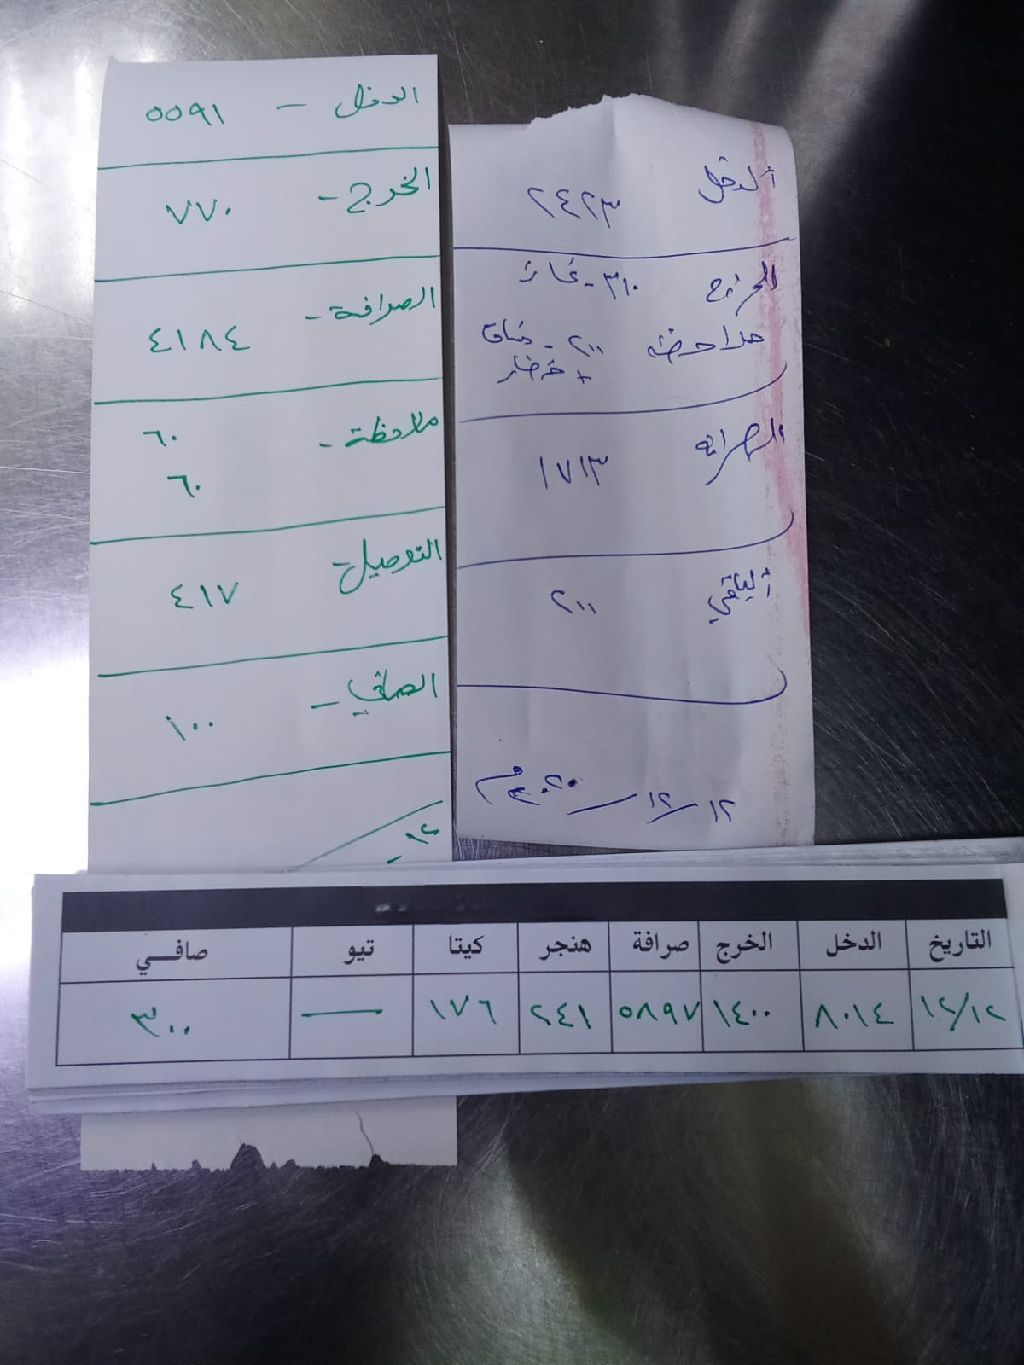 الدخل - ٥٥٩١
الخرج - ٧٧٠
الصرافة - ٤١٨٤
ملاحظة - ٦٠
٦٠
التوصيل - ٤١٧
الصافي - ١٠٠
١٢
الدخل ٢٤٢٣
الخرج ٣١٠ - غاز
ملاحظة ٢٠٠ -
+ خضار
الصرافه ١٧١٣
الباقي ٢٠٠
١٢/١٢/
التاريخ الدخل الخرج صرافة هنجر كيتا تيو صافي
١٢/١٢ ٨٠١٤ ١٤٠٠ ٥٨٩٧ ٢٤١ ١٧٦ — ٣٠٠